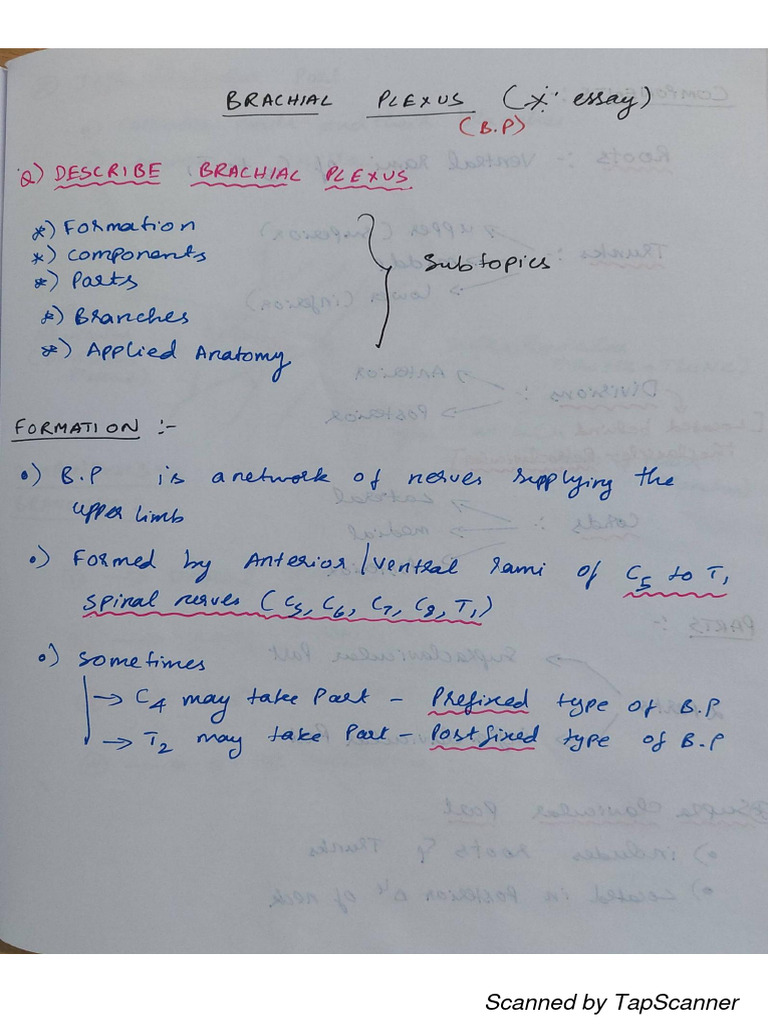 BRACHIAL PLEXUS (* essay)
(B.P)
Q) DESCRIBE BRACHIAL PLEXUS
*) Formation
*) components
*) Parts
*) Branches
*) Applied Anatomy
Subtopics
FORMATION :-
•) B.P is a network of nerves supplying the
upper limb
•) Formed by Anterior/ventral rami of C5 to T1
spinal nerves (C5, C6, C7, C8, T1)
•) sometimes
→ C4 may take Part - Prefixed type of B.P
→ T2 may take Part - Postfixed type of B.P
Scanned by TapScanner